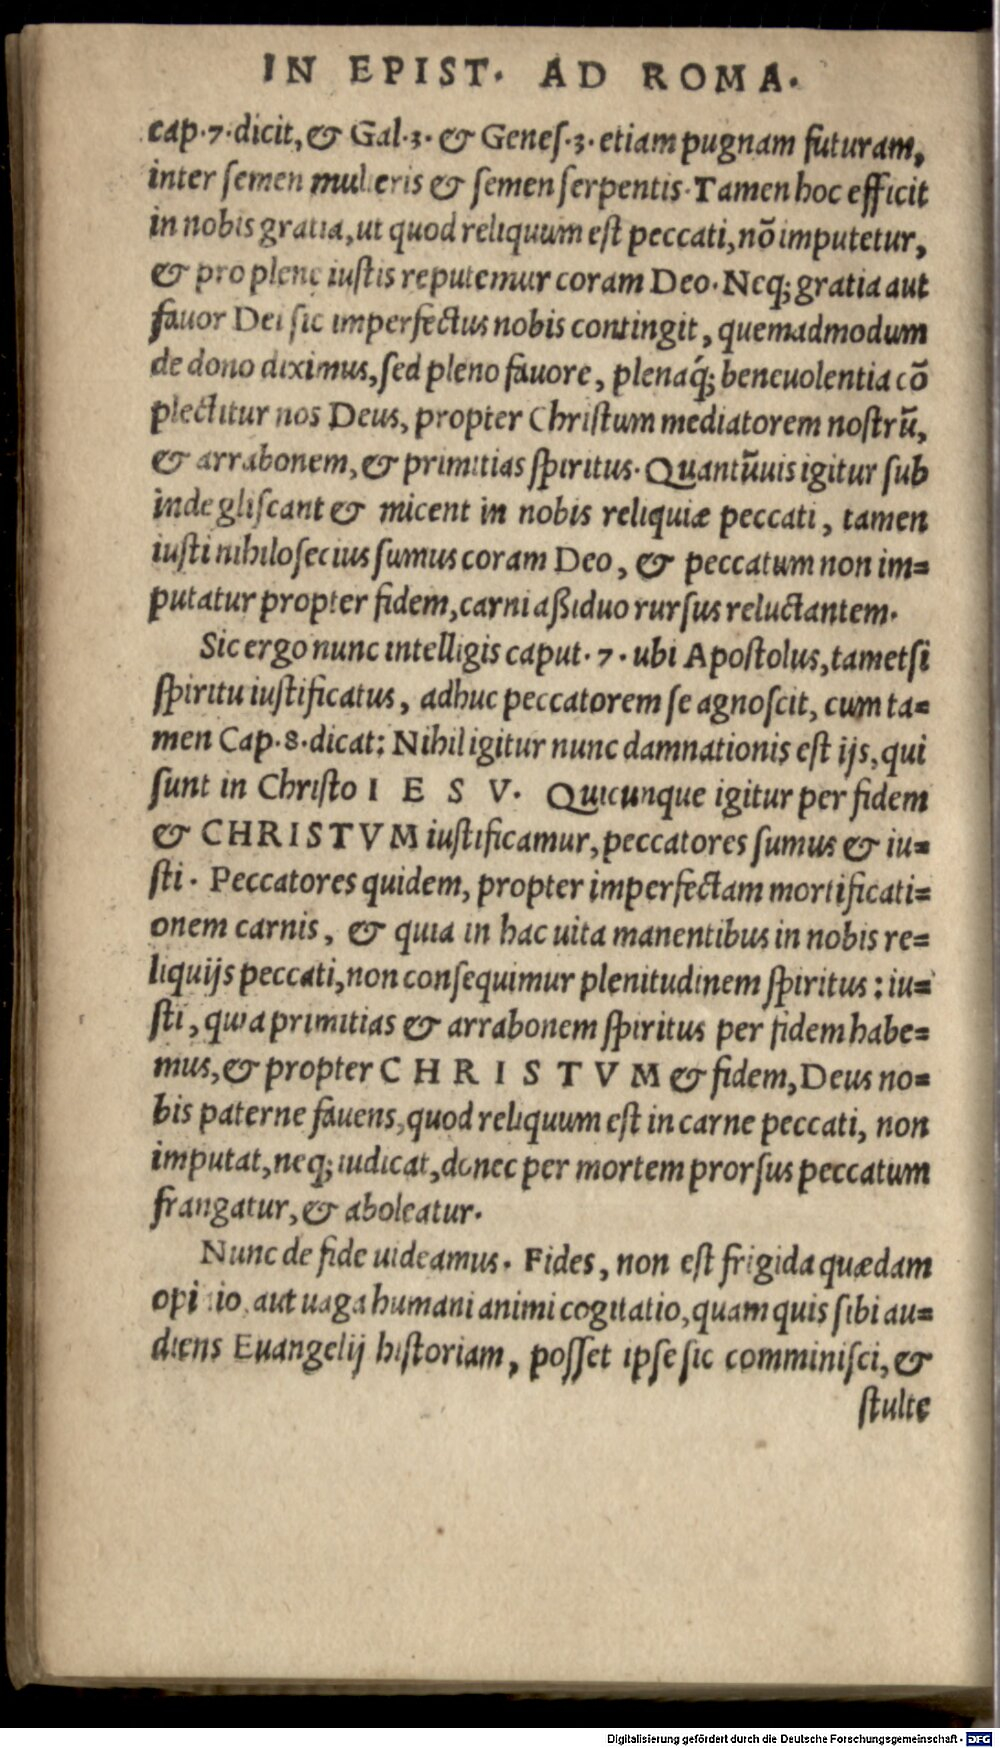 IN EPIST. AD ROMA.
cap.7.dicit, & Gal.3. & Genes.3. etiam pugnam futuram,
inter semen mulieris & semen serpentis. Tamen hoc efficit
in nobis gratia, ut quod reliquum est peccati, nō imputetur,
& pro plene iustis reputemur coram Deo. Neq; gratia aut
fauor Dei sic imperfectus nobis contingit, quemadmodum
de dono diximus, sed pleno fauore, plenaq́; beneuolentia cō
plectitur nos Deus, propter Christum mediatorem nostrū,
& arrabonem, & primitias spiritus. Quantūuis igitur sub
inde gliscant & micent in nobis reliquiæ peccati, tamen
iusti nihilosecius sumus coram Deo, & peccatum non im=
putatur propter fidem, carni aßiduo rursus reluctantem.
Sic ergo nunc intelligis caput. 7. ubi Apostolus, tametsi
spiritu iustificatus, adhuc peccatorem se agnoscit, cum ta=
men Cap.8.dicat: Nihil igitur nunc damnationis est ijs, qui
sunt in Christo I E S V. Quicunque igitur per fidem
& CHRISTVM iustificamur, peccatores sumus & iu=
sti. Peccatores quidem, propter imperfectam mortificati=
onem carnis, & quia in hac uita manentibus in nobis re=
liquijs peccati, non consequimur plenitudinem spiritus: iu=
sti, quia primitias & arrabonem spiritus per fidem habe=
mus, & propter C H R I S T V M & fidem, Deus no=
bis paterne fauens, quod reliquum est in carne peccati, non
imputat, neq; iudicat, donec per mortem prorsus peccatum
frangatur, & aboleatur.
Nunc de fide uideamus. Fides, non est frigida quædam
opinio, aut uaga humani animi cogitatio, quam quis sibi au=
diens Euangelij historiam, posset ipse sic comminisci, &
stulte
Digitalisierung gefördert durch die Deutsche Forschungsgemeinschaft - DFG